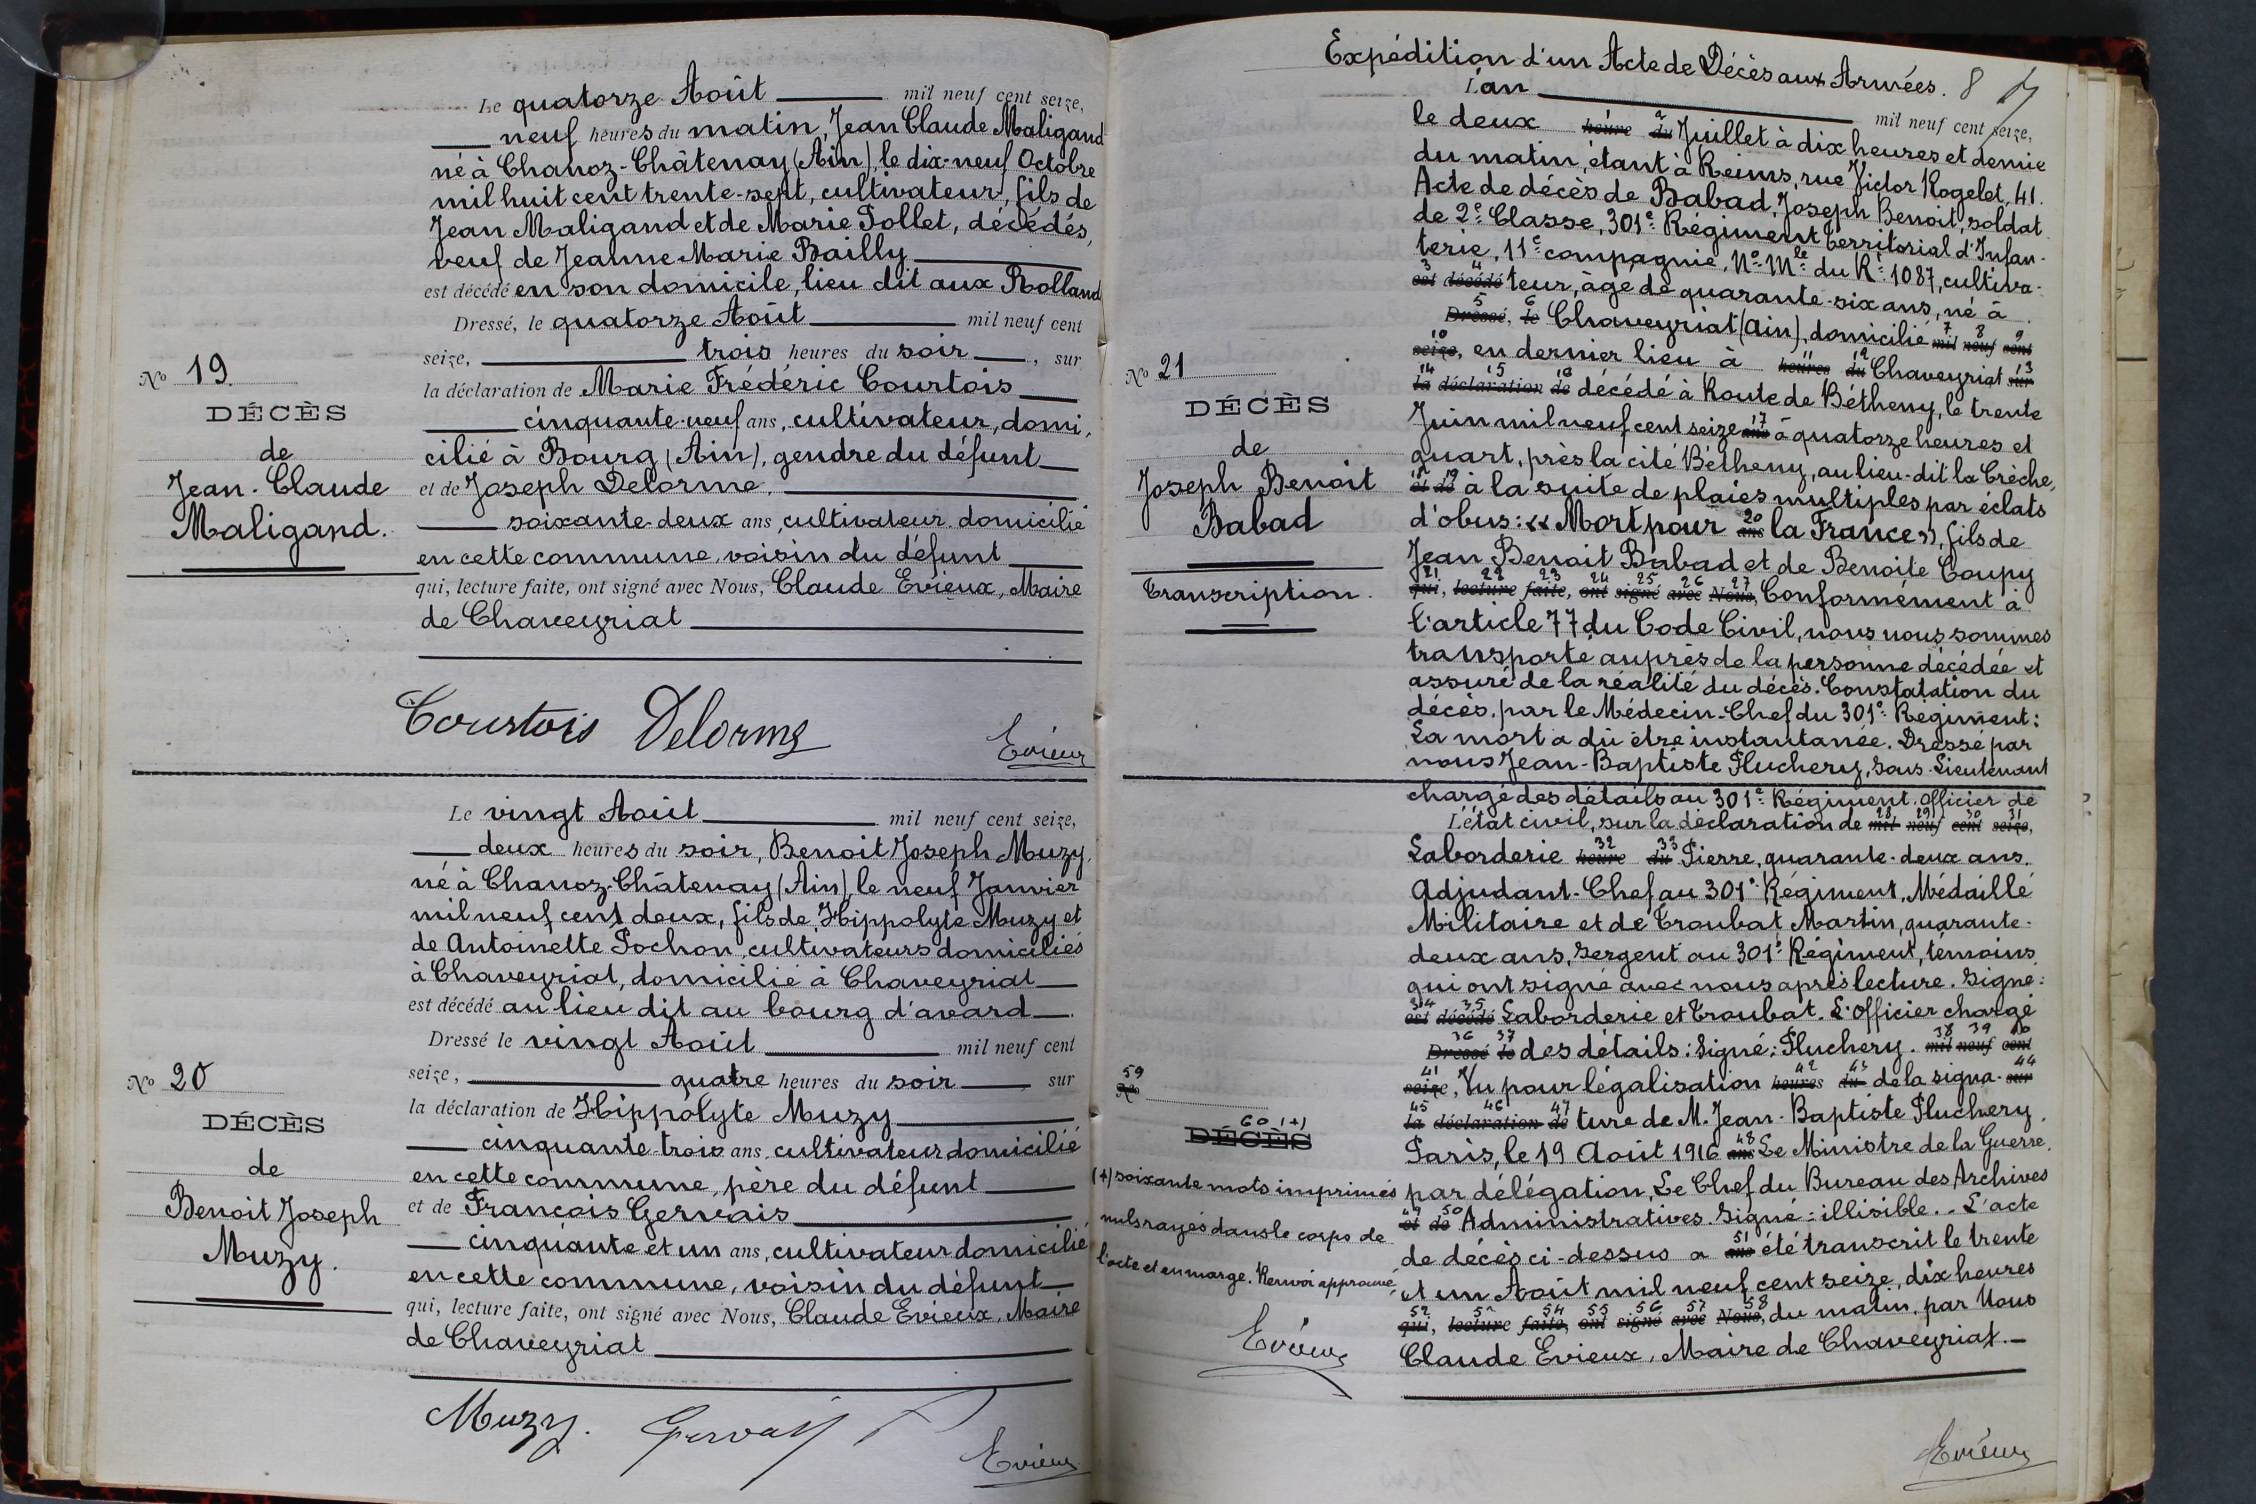 Le quatorze Août mil neuf cent seize,
neuf heures du matin, Jean Claude Maligand
né à Chanoz-Châtenay (Ain), le dix-neuf Octobre
mil huit cent trente-sept, cultivateur, fils de
Jean Maligand et de Marie Pollet, décédés,
veuf de Jeanne Marie Bailly
est décédé en son domicile, lieu dit aux Rolland
Dressé, le quatorze Août mil neuf cent
seize, trois heures du soir, sur
la déclaration de Marie Frédéric Courtois
cinquante-neuf ans, cultivateur, domi-
cilié à Bourg (Ain), gendre du défunt
et de Joseph Delorme,
soixante-deux ans, cultivateur domicilié
en cette commune, voisin du défunt
qui, lecture faite, ont signé avec Nous, Claude Evieux, Maire
de Chaveyriat
No 19.
DÉCÈS
de
Jean-Claude
Maligand.
Courtois Delorme Evieux
Le vingt Août mil neuf cent seize,
deux heures du soir, Benoit Joseph Muzy,
né à Chanoz-Châtenay (Ain), le neuf Janvier
mil neuf cent deux, fils de Hippolyte Muzy et
de Antoinette Pochon, cultivateurs domiciliés
à Chaveyriat, domicilié à Chaveyriat
est décédé au lieu dit au bourg d'avard
Dressé le vingt Août mil neuf cent
seize, quatre heures du soir sur
la déclaration de Hippolyte Muzy
cinquante-trois ans, cultivateur domicilié
en cette commune, père du défunt
et de François Gervais
cinquante et un ans, cultivateur domicilié
en cette commune, voisin du défunt
qui, lecture faite, ont signé avec Nous, Claude Evieux, Maire
de Chaveyriat
No 20
DÉCÈS
de
Benoit Joseph
Muzy.
Muzy. Gervais Evieux
Expédition d'un Acte de Décès aux Armées. 8
L'an mil neuf cent seize,
le deux heure du Juillet à dix heures et demie
du matin, étant à Reims, rue Victor Rogelet, 41.
Acte de décès de Babad, Joseph Benoit, soldat
de 2e Classe, 301e Régiment territorial d'Infan-
terie, 11e compagnie, No Mle du Rt 1087, cultiva-
3 4
est décédé teur, âgé de quarante-six ans, né à
5 6
Dressé, le Chaveyriat (Ain), domicilié mil neuf cent
7 8 9
10
seize, en dernier lieu à heures du Chaveyriat sur
11 12 13
14 15 16
la déclaration de décédé à Route de Bétheny, le trente
Juin mil neuf cent seize ans à quatorze heures et
17
quart, près la cité Bétheny, au lieu-dit la Crèche,
18 19
et de à la suite de plaies multiples par éclats
d'obus: « Mort pour ans la France », fils de
20
Jean Benoit Babad et de Benoite Coupy
21 22 23 24 25 26 27
qui, lecture faite, ont signé avec Nous, Conformément à
l'article 77 du Code Civil, nous nous sommes
transporté auprès de la personne décédée et
assuré de la réalité du décès. Constatation du
décès, par le Médecin-Chef du 301e Régiment:
La mort a dû être instantanée. Dressé par
nous Jean-Baptiste Pluchery, Sous-Lieutenant
No 21
DÉCÈS
de
Joseph Benoit
Babad
Transcription.
chargé des détails au 301e Régiment, officier de
L'état civil, sur la déclaration de mil neuf cent seize,
28 29 30 31
Laborderie heure du Pierre, quarante-deux ans,
32 33
Adjudant-Chef au 301e Régiment, Médaillé
Militaire et de Troubat Martin, quarante-
deux ans, Sergent au 301e Régiment, témoins
qui ont signé avec nous après lecture. Signé:
34 35
est décédé Laborderie et Troubat. L'officier chargé
36 37
Dressé le des détails: Signé: Pluchery. mil neuf cent
38 39 40
41
seize, Vu pour légalisation heures du de la signa- sur
42 43 44
45 46 47
la déclaration de ture de M. Jean-Baptiste Pluchery.
Paris, le 19 Août 1916 ans Le Ministre de la Guerre.
48
par délégation, Le Chef du Bureau des Archives
49 50
et de Administratives. Signé: illisible. - L'acte
de décès ci-dessus a ans été transcrit le trente
51
et un Août mil neuf cent seize, dix heures
52 53 54 55 56 57 58
qui, lecture faite, ont signé avec Nous, du matin, par Nous
Claude Evieux, Maire de Chaveyriat.
59
No
60 (+)
DÉCÈS
(+) soixante mots imprimés
nuls rayés dans le corps de
l'acte et en marge. Renvoi approuvé,
Evieux
Evieux